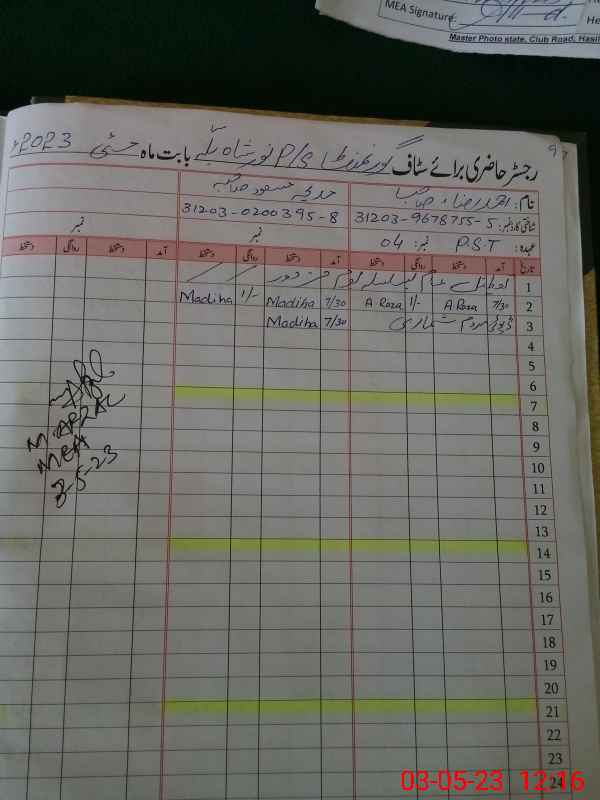 MEA Signature:
He
Master Photo state, Club Road, Hasil
9
رجسٹر حاضری برائے سٹاف گورنمنٹ P/S نور شاہ بابت ماہ مئی 2023ء
نام: احمد رضا صاحب مدیحہ مسعود صاحبہ
شناختی کارڈ نمبر: 31203-9678755-5 31203-0200395-8
عہدہ: P.S.T نمبر: 04 نمبر نمبر
تاریخ آمد دستخط روانگی دستخط آمد دستخط روانگی دستخط آمد دستخط روانگی دستخط
1 تعطیل عام بسلسلہ یوم مزدور
2 7/30 A Raza 1/- A Raza 7/30 Madiha 1/- Madiha
3 ڈیوٹی مردم شماری 7/30 Madiha
4
5
6
7
8
9
10
11
12
13
14
15
16
17
18
19
20
21
22
23
24
MEA
3-5-23
03-05-23 12:16